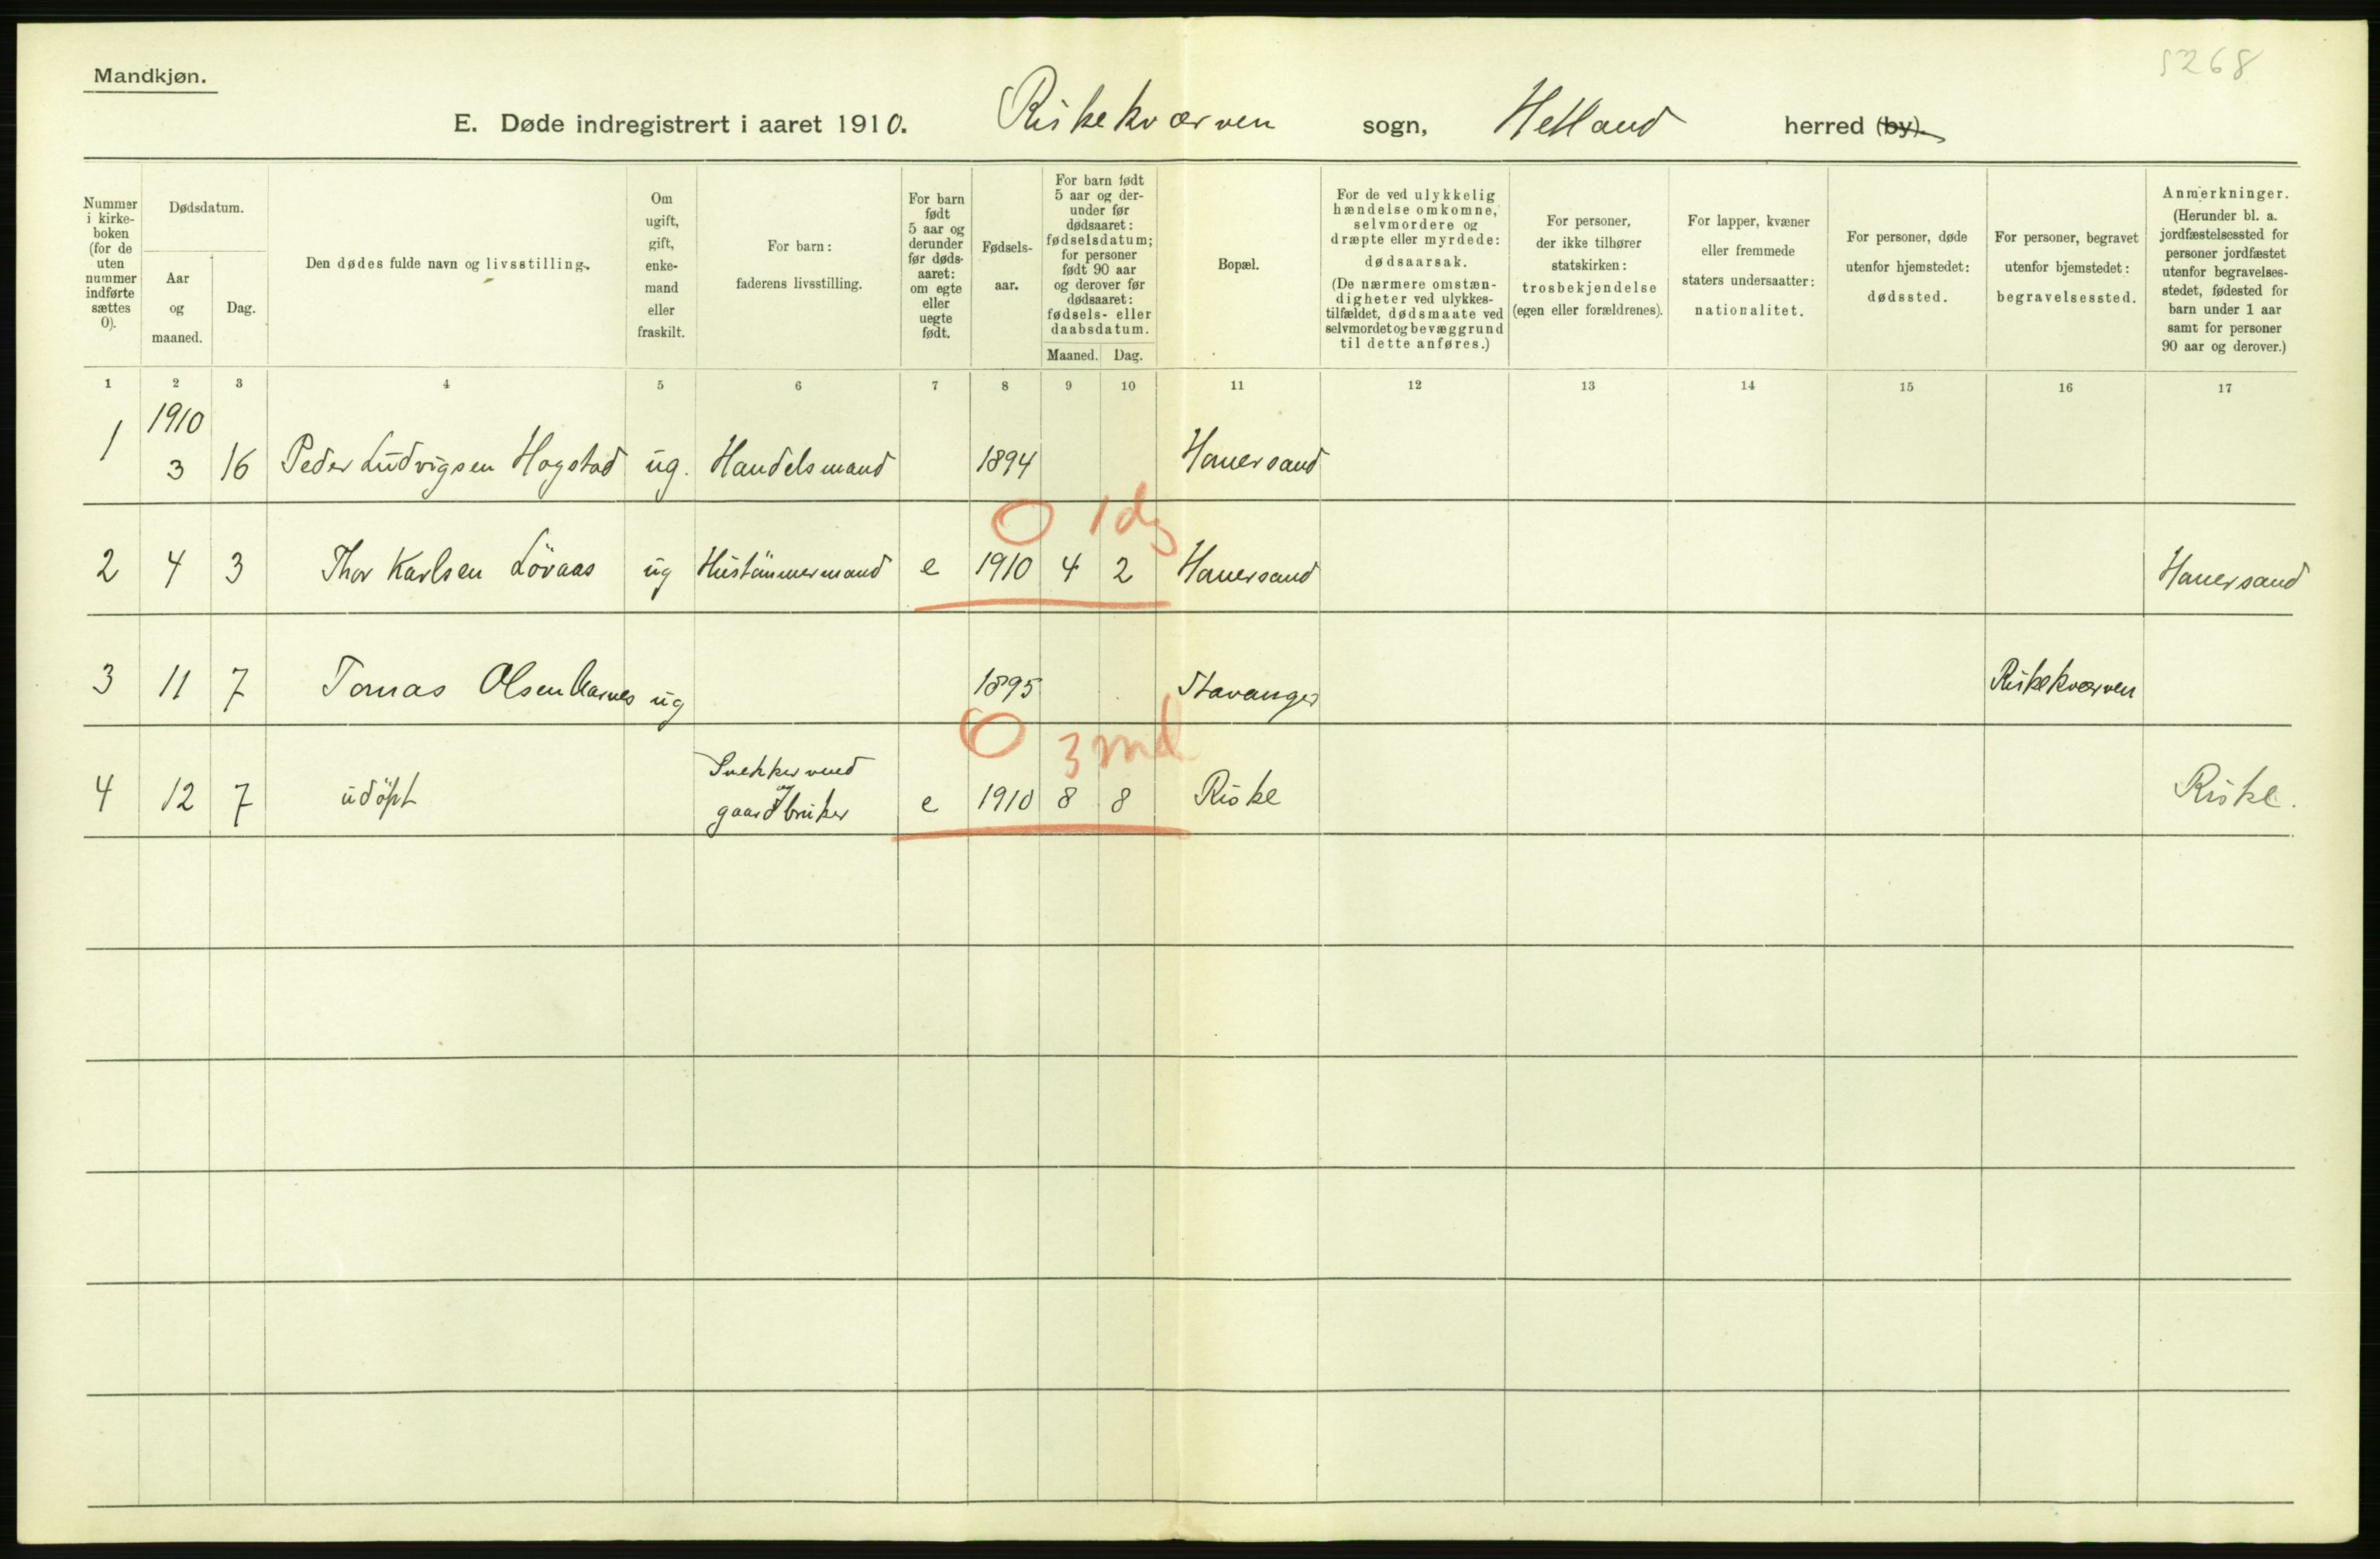 5268
Mandkjøn.
E. Døde indregistrert i aaret 1910. Riskekværven sogn, Hetland herred (by).
Nummer i kirke-boken (for de uten nummer indførte sættes 0).
Dødsdatum.
Aar og maaned.
Dag.
Den dødes fulde navn og livsstilling.
Om ugift, gift, enke-mand eller fraskilt.
For barn: faderens livsstilling.
For barn født 5 aar og derunder før døds-aaret: om egte eller uegte født.
Fødsels-aar.
For barn født 5 aar og der-under før dødsaaret: fødselsdatum; for personer født 90 aar og derover før dødsaaret: fødsels- eller daabsdatum.
Maaned. Dag.
Bopæl.
For de ved ulykkelig hændelse omkomne, selvmordere og dræpte eller myrdede: dødsaarsak. (De nærmere omstæn-digheter ved ulykkes-tilfældet, dødsmaate ved selvmordet og bevæggrund til dette anføres.)
For personer, der ikke tilhører statskirken: trosbekjendelse (egen eller forældrenes).
For lapper, kvæner eller fremmede staters undersaatter: nationalitet.
For personer, døde utenfor hjemstedet: dødssted.
For personer, begravet utenfor hjemstedet: begravelsessted.
Anmerkninger. (Herunder bl. a. jordfæstelsessted for personer jordfæstet utenfor begravelses-stedet, fødested for barn under 1 aar samt for personer 90 aar og derover.)
1 2 3 4 5 6 7 8 9 10 11 12 13 14 15 16 17
1910
1 3 16 Peder Ludvigsen Hogstad ug. Handelsmand 1894 Hauersand
0 1 dg
2 4 3 Thor Karlsen Lövaas ug Hustömmermand e 1910 4 2 Hauersand Hauersand
3 11 7 Tomas Olsen ug 1895 Stavanger Riskekværven
0 3 md
Snekkersvend
4 12 7 udöpt og gaardbruker e 1910 8 8 Riske Riske.